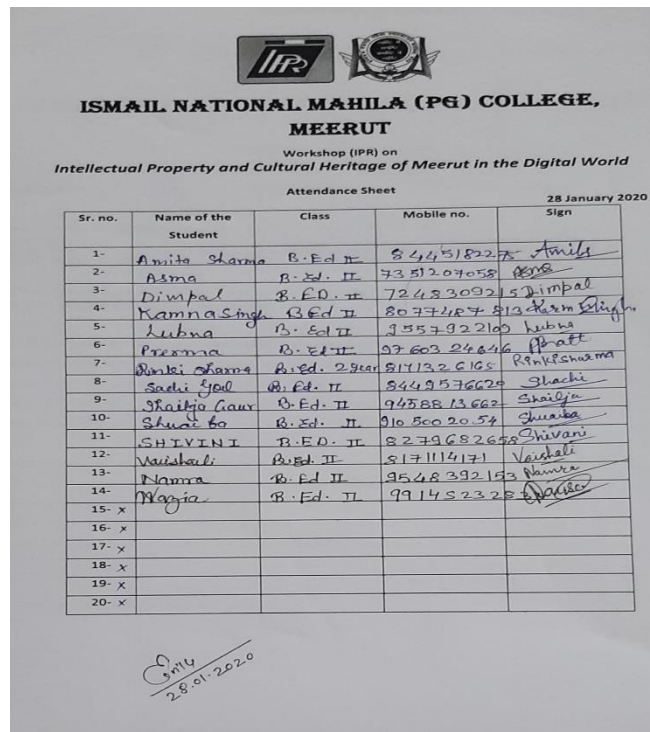 IPR
ISMAIL NATIONAL MAHILA (PG) COLLEGE,
MEERUT
Workshop (IPR) on
Intellectual Property and Cultural Heritage of Meerut in the Digital World
Attendance Sheet
28 January 2020
Sr. no. Name of the Student Class Mobile no. Sign
1- Amita Sharma B.Ed II 8445182275 Amita
2- Asma B.Ed. II 7351207058 Asma
3- Dimpal B.ED. II 7248309215 Dimpal
4- Kamna Singh B Ed II 8077487813 Singh
5- Lubna B.Ed II 9557922109 Lubna
6- Prerna B.Ed II 9760324646
7- Rinki Sharma B.Ed. 2 year 8171326165 Rinki Sharma
8- Sachi Goel B.Ed. II 8449576620 Shachi
9- Shailja Gaur B.Ed. II 9458813662 Shailja
10- Shuaiba B.Ed. II 9105002054 Shuaiba
11- SHIVINI B.ED. II 8279682658 Shivani
12- Vaishali B.Ed. II 8171114171 Vaishali
13- Namra B.Ed II 9548392153 Namra
14- Nazia B.Ed. II 9914523283
15- x
16- x
17- x
18- x
19- x
20- x
28.01.2020